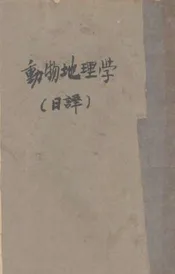 動物地理学
(日譯)